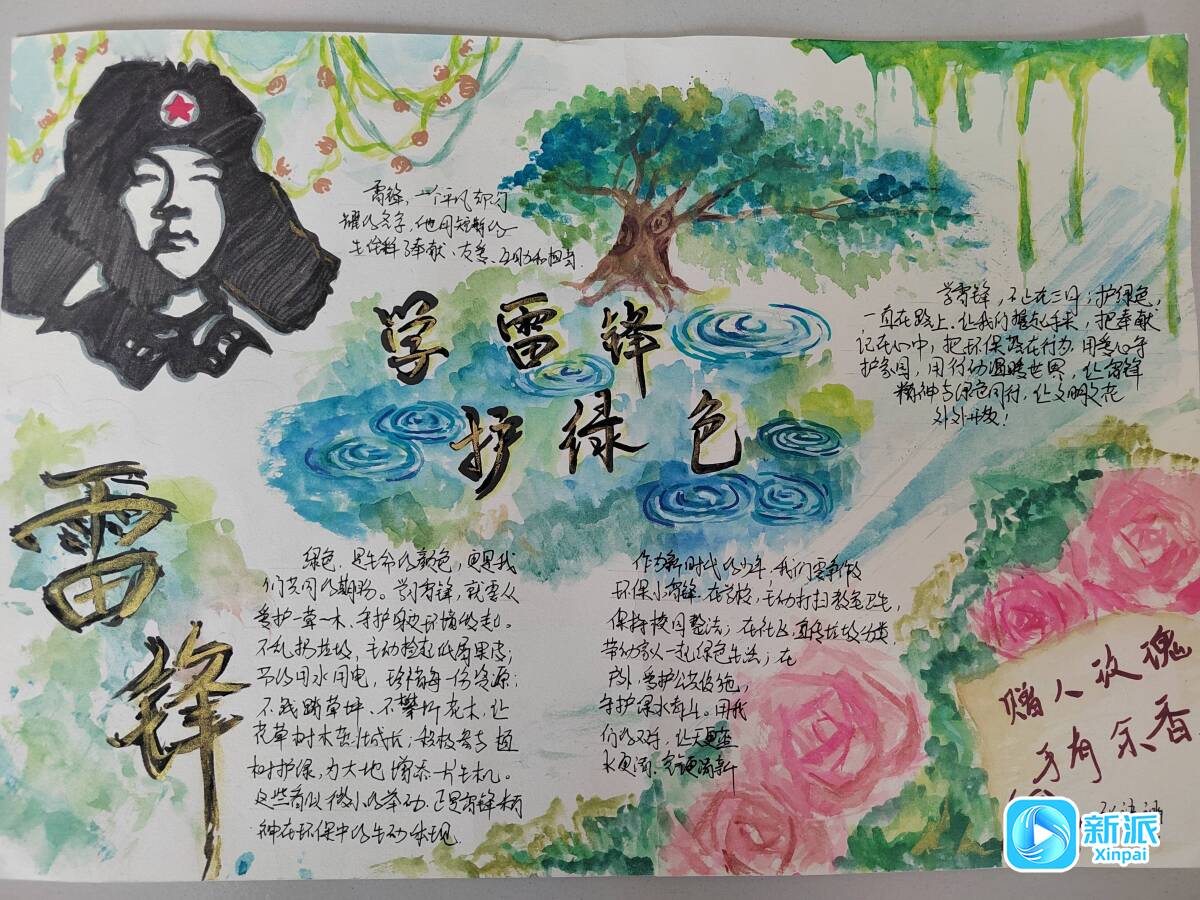 雷锋，一个平凡却闪
耀的名字，他用短暂的
一生诠释了奉献、友善、互助和担当。
学雷锋
护绿色
学雷锋，不止在三月；护绿色，
一直在路上。让我们握起手来，把奉献
记在心中，把环保落在行动，用爱心守
护家园，用行动温暖世界，让雷锋
精神与绿色同行，让文明之花
处处开放！
雷
锋
绿色，是生命的颜色，更是我
们共同的期盼。学习雷锋，就要从
爱护一草一木、守护身边环境做起。
不乱扔垃圾，主动捡起纸屑果皮；
节约用水用电，珍惜每一份资源；
不践踏草坪、不攀折花木，让
花草树木茁壮成长；积极参与植
树护绿，为大地增添一片生机。
这些看似微小的举动，正是雷锋精
神在环保中的生动体现。
作为新时代的少年，我们要争做
环保小雷锋。在学校，主动打扫教室卫生，
保持校园整洁；在社区，宣传垃圾分类，
带动家人一起绿色生活；在
户外，爱护公共设施，
守护绿水青山。用我
们的双手，让天更蓝
水更清、空气更清新
赠人玫瑰
手有余香
新派
Xinpai